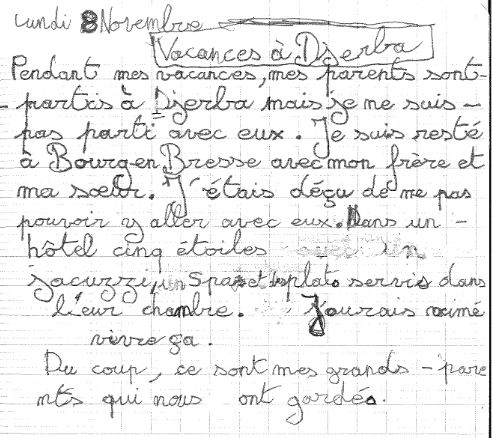 Lundi 8 Novembre
Vacances à Djerba
Pendant mes vacances, mes parents sont-
- partis à Djerba mais je me suis -
pas parti avec eux. Je suis resté
à Bourg-en Bresse avec mon frère et
ma sœur. J'étais déçu de ne pas
pouvoir y aller avec eux. Dans un -
hôtel cinq étoiles avec un
jacuzzi, un spa et les plats servis dans
leur chambre. J'aurais aimé
vivre ça.
Du coup, ce sont mes grands - pare
nts qui nous ont gardés.